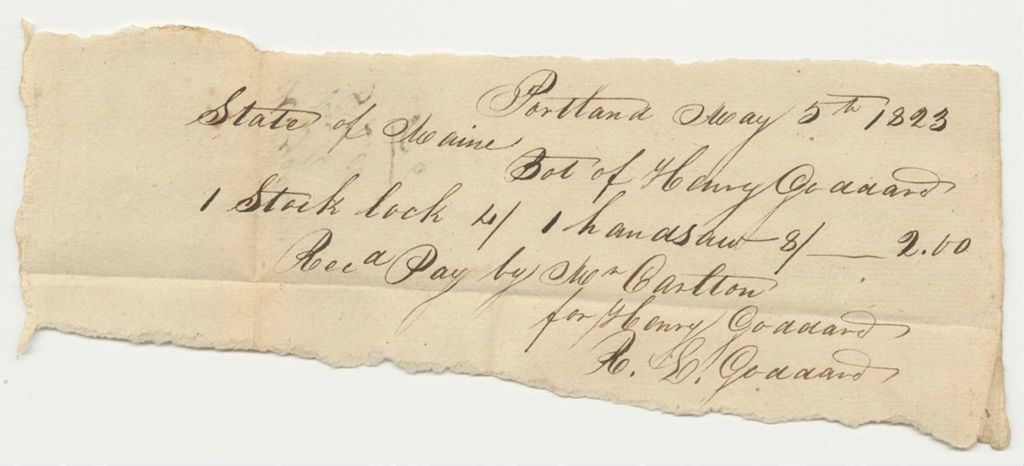 Portland May 5th 1823
State of Maine
Bot of Henry Goddard
1 Stock lock 4/ 1 handsaw 8/ — 2.00
Recd Pay by Mr Carlton
for Henry Goddard
R. L. Goddard